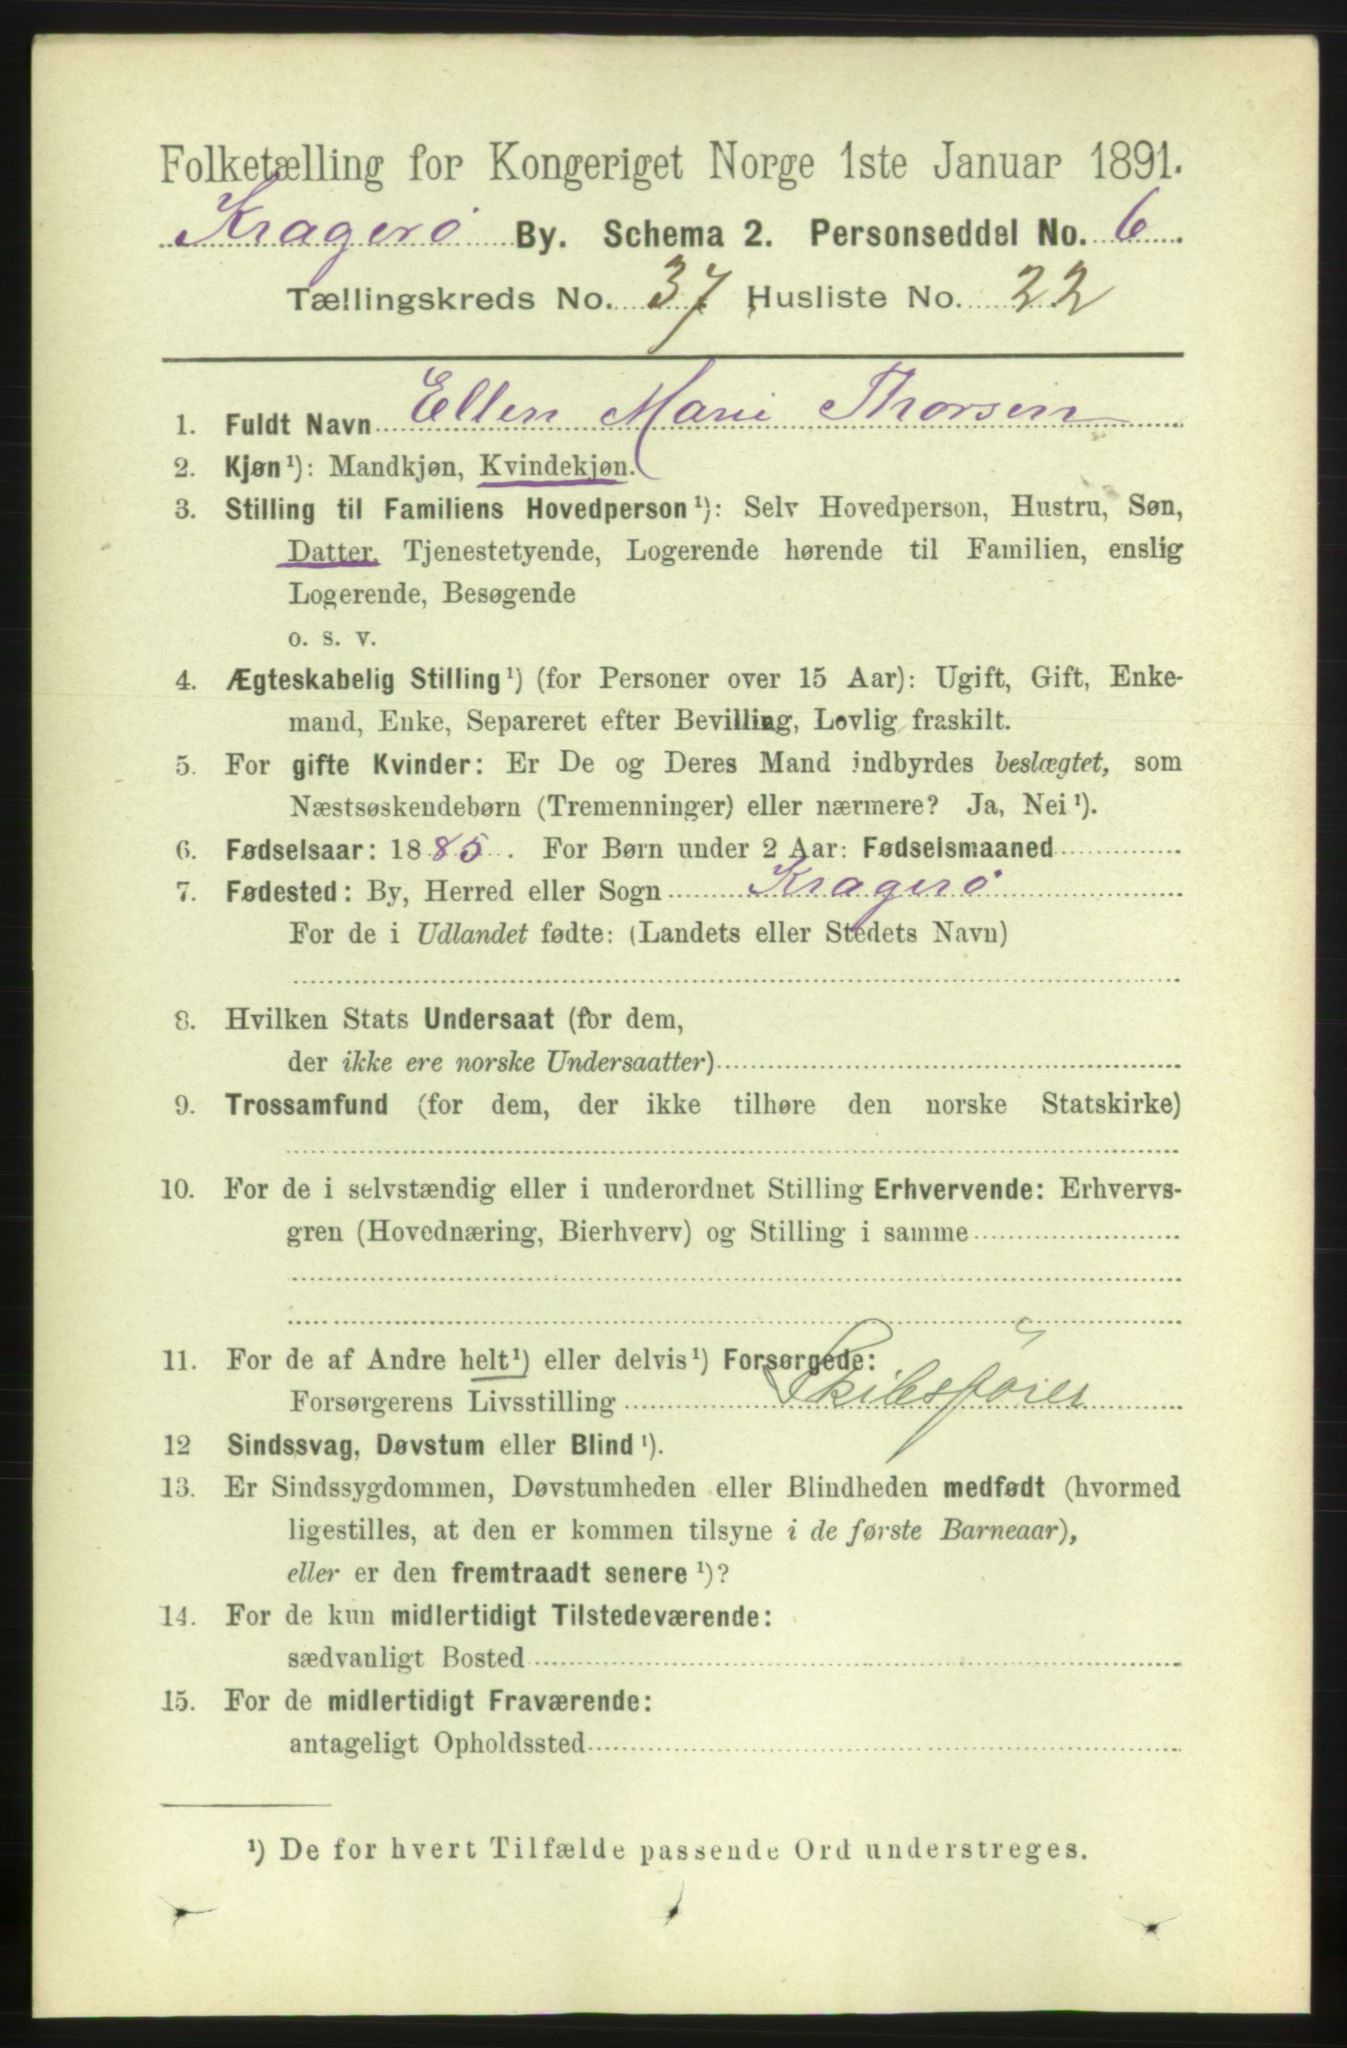 Folketælling for Kongeriget Norge 1ste Januar 1891.
Kragerø By. Schema 2. Personseddel No. 6.
Tællingskreds No. 37 Husliste No. 22
1. Fuldt Navn Ellen Marie Thorsen
2. Kjøn¹): Mandkjøn, Kvindekjøn.
3. Stilling til Familiens Hovedperson¹): Selv Hovedperson, Hustru, Søn,
Datter, Tjenestetyende, Logerende hørende til Familien, enslig
Logerende, Besøgende
o. s. v.
4. Ægteskabelig Stilling¹) (for Personer over 15 Aar): Ugift, Gift, Enke-
mand, Enke, Separeret efter Bevilling, Lovlig fraskilt.
5. For gifte Kvinder: Er De og Deres Mand indbyrdes beslægtet, som
Næstsøskendebørn (Tremenninger) eller nærmere? Ja, Nei¹).
6. Fødselsaar: 1885. For Børn under 2 Aar: Fødselsmaaned
7. Fødested: By, Herred eller Sogn Kragerø
For de i Udlandet fødte: (Landets eller Stedets Navn)
8. Hvilken Stats Undersaat (for dem,
der ikke ere norske Undersaatter)
9. Trossamfund (for dem, der ikke tilhøre den norske Statskirke)
10. For de i selvstændig eller i underordnet Stilling Erhvervende: Erhvervs-
gren (Hovednæring, Bierhverv) og Stilling i samme
11. For de af Andre helt¹) eller delvis¹) Forsørgede:
Forsørgerens Livsstilling Skibsfører
12 Sindssvag, Døvstum eller Blind¹).
13. Er Sindssygdommen, Døvstumheden eller Blindheden medfødt (hvormed
ligestilles, at den er kommen tilsyne i de første Barneaar),
eller er den fremtraadt senere¹)?
14. For de kun midlertidigt Tilstedeværende:
sædvanligt Bosted
15. For de midlertidigt Fraværende:
antageligt Opholdssted
¹) De for hvert Tilfælde passende Ord understreges.